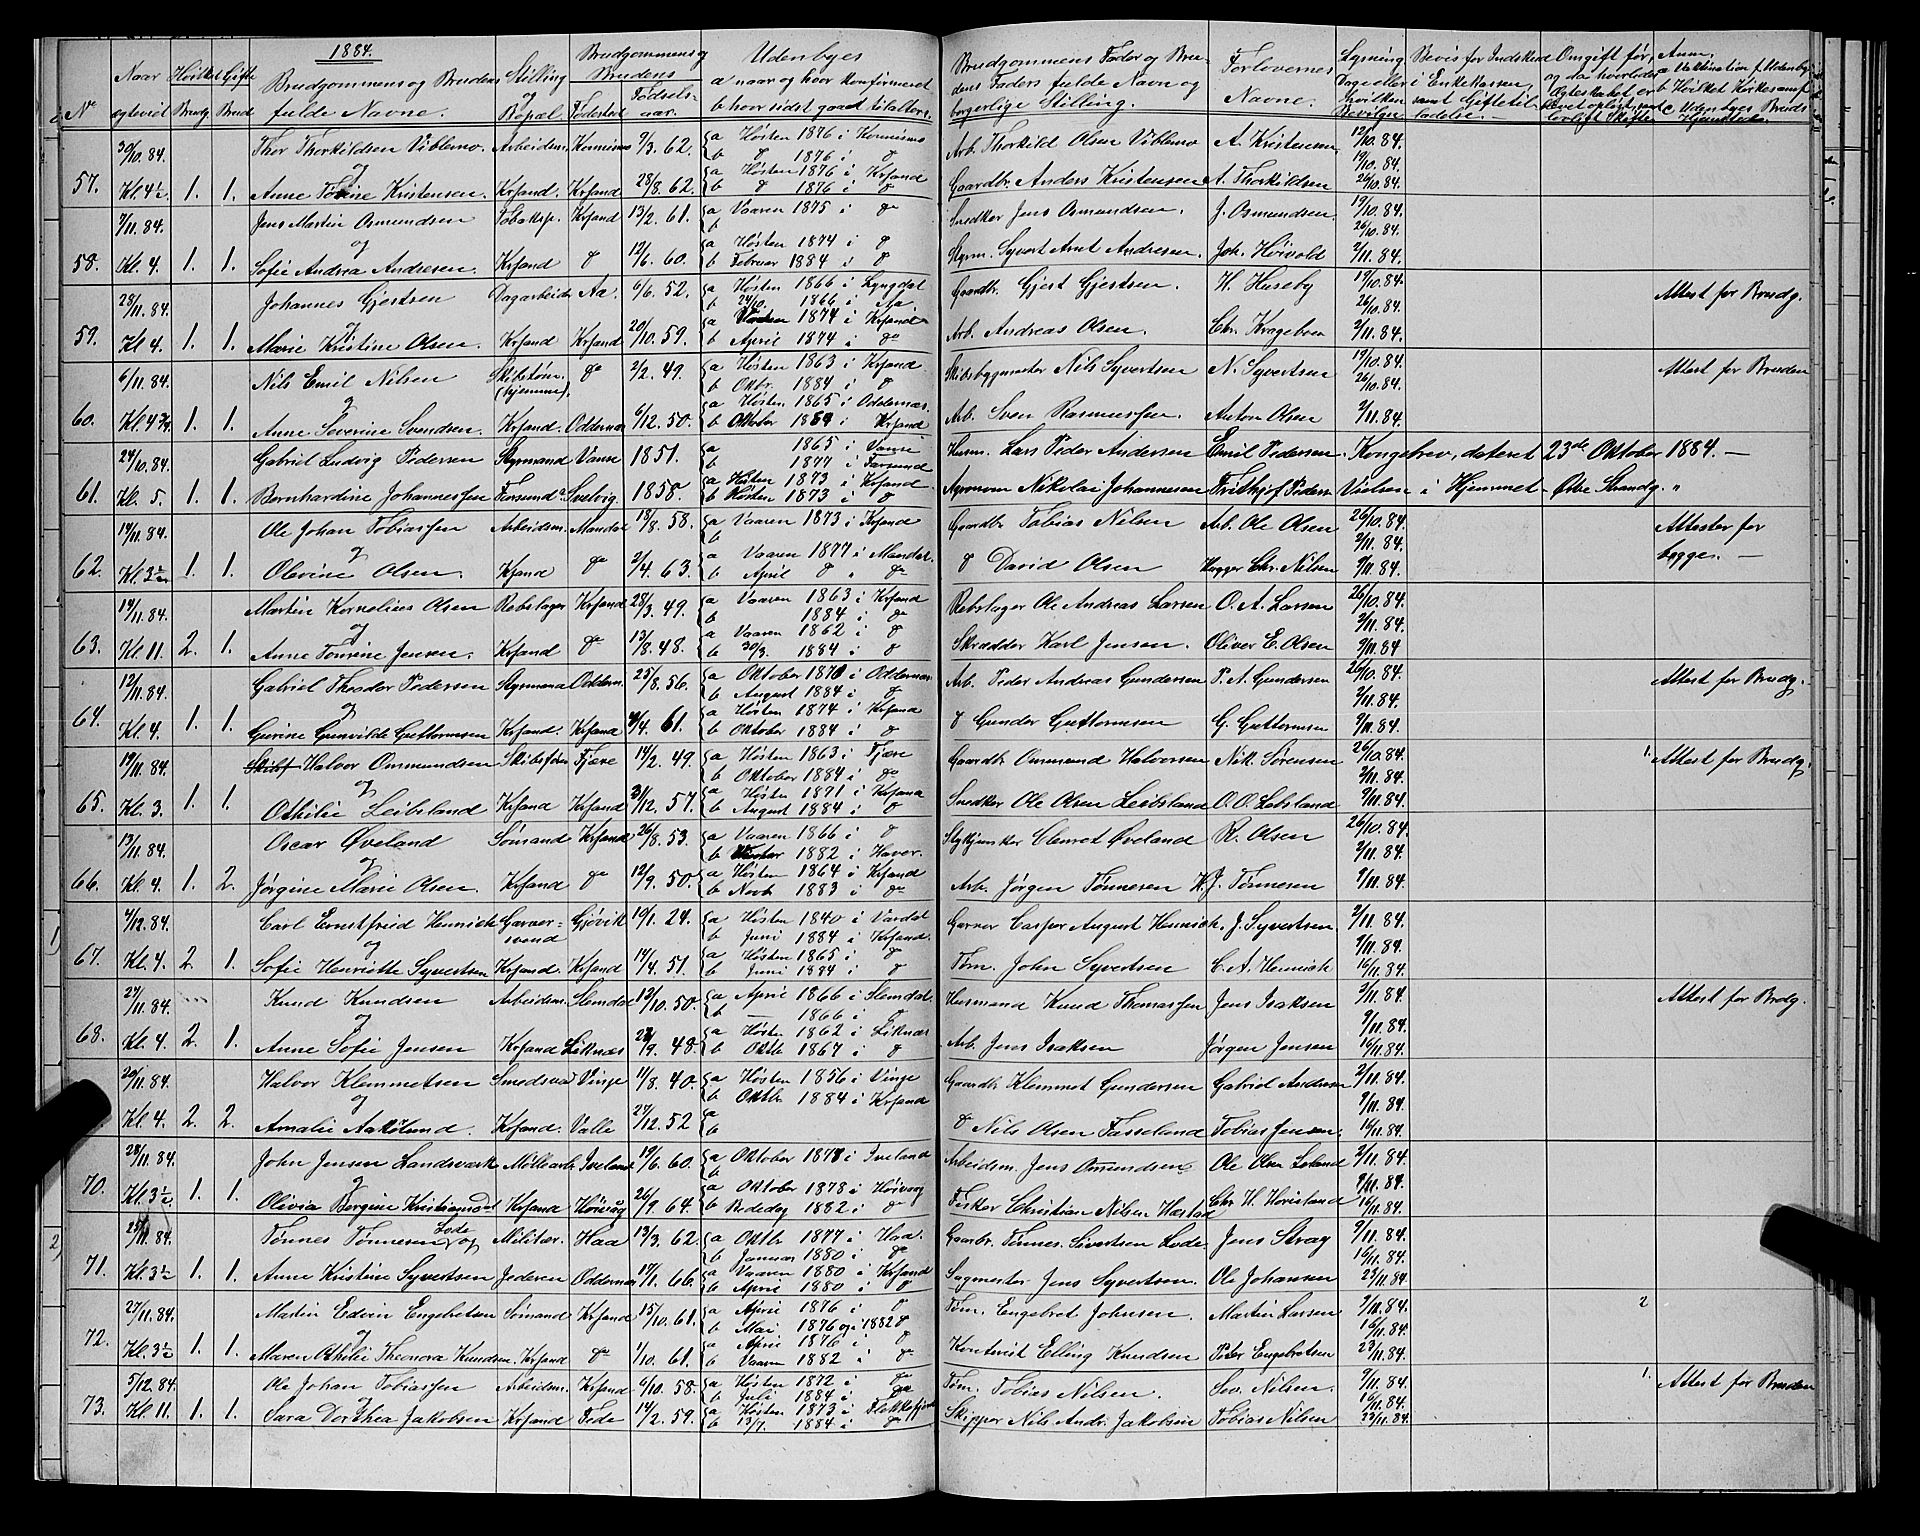 1884.
No
Naar ægteviet
Hvilket Gifte
Brudg. Brud
Brudgommens og Brudens fulde Navne.
Stilling og Bopæl.
Brudgommens og Brudens
Fødested Fødsels-aar.
Udenbyes
a naar og hvor konfirmeret
b hvor sidst gaaet til alters.
Brudgommens Fader og Brudens Faders fulde Navn og borgerlige Stilling.
Forlovernes Navne.
30/10. 84. Thor Thorkildsen Viblemo. Arbeidsm. 9/3. 62. a Høsten 1876 i Arb. Thorkild Olsen Viblemo A. Kristensen 12/10. 84.
og b do 1876 i do 19/10. 84.
57. Kl. 4½ 1. 1. Anne Kristensen. Krsand. Krsand 28/8. 62. a Høsten 1876 i Krsand b do 1876 i do Gaardbr. Anders Kristensen A. Thorkildsen 26/10. 84.
7/11. 84. Jens Martin Osmundsen Krsand 13/2. 61. a Vaaren 1875 i do b Snedker Jens Osmundsen. J. Osmundsen 19/10. 84.
og 26/10. 84.
58. Kl. 4. 1. 1. Sofie Andrea Andresen. Krsand do 12/6. 60. a Høsten 1874 i do b Februar 1884 i do Styrm. Syvert Arnt Andresen. Joh. Høivold 2/11. 84.
28/11. 84. Johannes Gjertsen Dagarbeider Aa. 6/6. 52. a Høsten 1866 i Lyngdal b 24/10. 1866 i Aa. Gaardbr. Gjert Gjertsen. H. Huseby 19/10. 84. Attest for Brudg.
og 26/10. 84.
59. Kl. 4. 1. 1. Marie Kristine Olsen. Krsand Krsand 20/10. 59. a 1874 i Krsand b April 1874 i do Arb. Andreas Olsen. Chr. Krageboen 2/11. 84.
6/11. 84. Nils Emil Nilsen Skibstøm. (hjemme) do 2/2. 49. a Høsten 1863 i Krsand. b Oktbr. 1884 i do Skibsbygmester Nils Syvertsen N. Syvertsen 19/10. 84. Attest for Bruden
og 26/10. 84.
60. Kl. 4¾ 1. 1. Anne Severine Svendsen. Krsand. Oddernæs 6/12. 50. a Høsten 1865 i Oddernæs. b Oktober 1884 i Krsand Arb. Sven Rasmussen. Anton Olsen 2/11. 84.
24/10. 84. Gabriel Ludvig Pedersen Styrmand Vanse 1851. a 1865 i Vanse b 1877 i Farsund Husm. Lars Peder Andersen Emil Pedersen. Kongebrev, dateret 23de Oktober 1884. —
61. Kl. 5. 1. 1. Bernhardine Johannessen Farsund Svelvig. 1858. a Høsten 1873 i Krsand b Høsten 1873 i do Agronom Nikolai Johannesen Frithjof Peders. Vielsen i Hjemmet – Østre Strandg. "
14/11. 84. Ole Johan Tobiassen Arbeidsm. Mandal 18/8. 58. a Vaaren 1873 i Krsand b Gaardbr. Tobias Nilsen Arb. Ole Olsen 26/10. 84. Attester for
og 2/11. 84. begge. —
62. Kl. 3½ 1. 1. Olevine Olsen. Krsand do 2/4. 63. a Vaaren 1877 i Mandal. b April do " do do David Olsen Hugger Chr. Nilsen 9/11. 84.
14/11. 84. Martin Kornelius Olsen Rebslager Krsand 28/3. 49. a Vaaren 1863 i Krsand b 1884 i do Rebslager Ole Andreas Larsen O. A. Larsen 26/10. 84.
og 2/11. 84.
63. Kl. 11. 2. 1. Anne Tomine Jensen. Krsand do 13/8. 48. a Vaaren 1862 i do b 30/3. 1884 i do Skrædder Karl Jensen. Oliver E. Olsen 9/11. 84
12/11. 84. Gabriel Theodor Pedersen Styrmand Oddern. 25/8. 56. a Oktober 1871 i Oddernæs b August 1884 i do Arb. Peder Andreas Gundersen P. A. Gundersen 26/10. 84. Attest for Brudg.
og 2/11. 84.
64. Kl. 4. 1. 1. Gurine Gunvilde Guttormsen Krsand. Krsand /4. 61. a Høsten 1874 i Krsand b Oktober 1884 i do do Gunder Guttormsen G. Guttormsen 9/11. 84.
19/11. 84. Halvor Ommundsen Skibsfører Fjære 14/2. 49. a Høsten 1863 i Fjære b Oktober 1884 i do Gaardbr. Ommund Halvorsen Nik. Sørensen 26/10. 84. 1. Attest for Brudg.
og 2/11. 84.
65. Kl. 3. 1. 1. Othilie Leibsland Krsand Krsand 21/12. 57. a Høsten 1871 i Krsand b August 1884 i do Snedker Ole Olsen Leibsland O. O. Lebsland 9/11. 84.
13/11. 84. Oscar Øveland Sømand Krsand 26/8. 53. a Vaaren 1866 i do b 1882 i Havre. Stykjunker Clemet Øveland R. Olsen 26/10. 84.
og 2/11. 84.
66. Kl. 4. 1. 2. Jørgine Marie Olsen. Krsand do 12/9. 50. a Høsten 1864 i Krsand b Novb 1883 i do Arb. Jørgen Tønnesen H. J. Tønnesen 9/11. 84.
4/12. 84. Carl Ernstfried Hennich Garversvend Gjøvik 19/1. 24. a Høsten 1840 i Vardal b Juni 1884 i Krsand. Garver Casper August Hennich. J. Syvertsen 2/11. 84.
og 9/11. 84.
67. Kl. 4. 2. 1. Sofie Henriette Syvertsen Krsand. Krsand 14/4. 51. a Høsten 1865 i do b Juni 1884 i do Tøm. John Syvertsen C. A. Hennich 16/11. 84.
27/11. 84. Knud Knudsen Arbeidsm. Slemdal 13/10. 50. a April 1866 i Slemdal. b — 1866 i do Husmand Knud Thomassen Jens Isaksen 2/11. 84. Attest for Brdg.
og 9/11. 84.
68. Kl. 4. 2. 1. Anne Sofie Jensen Krsand Liknæs 23/9. 48. a Høsten 1862 i Liknæs b Oktb. 1867 i do Arb. Jens Isaksen Jørgen Jensen 16/11. 84.
20/11. 84. Halvor Klemmetsen Smedsvend Vinje 11/8. 40. a Høsten 1856 i Vinje b Oktbr 1884 i Krsand Gaardbr. Klemmet Gundersen Gabriel Andersen 2/11. 84.
og 9/11. 84.
Kl. 4. 2. 2. Amalie Krsand. Valle 27/12. 52 a b do Nils Olsen Fasseland Tobias Jensen. 16/11. 84.
28/11. 84. John Jensen Landsværk Møllearb. Iveland 19/6. 60. a Oktober 1878 i Iveland b Arbeidsm. Jens Omundsen Ole Olsen Loland 2/11. 84.
og 9/11. 84.
70. Kl. 3½ 1. 1. Olivia Bergine Kristiansd Krsand Høivåg 26/9. 64. a Oktober 1878 i Høivåg b Bededag 1882 i do Fisker Christian Nilsen Hæstad Chr. H. Hovisland 16/11. 84.
25/11. 84. Tønnes Tønnesen Lode og Militær. Haa 13/3. 62. a Oktbr 1877 i Haa. b Januar 1880 i do Gaardbr. Tønnes Sivertsen Lode Jens Stray 9/11. 84.
16/11. 84.
71. Kl. 3½ 1. 1. Anne Kristine Syvertsen Jederen Oddernæs 17/1. 66. a Vaaren 1880 i Krsand b April 1880 i do Sagmester Jens Syvertsen. Ole Johansen 23/11. 84.
27/11. 84. Martin Edvin Engebretsen Sømand Krsand 15/10. 61. a April 1876 i do b Mai 1876 og i 1882 do Tøm. Engebret Johnsen. Martin Larsen 9/11. 84. 2
og 16/11. 84.
72. Kl. 3½ 1. 1. Maren Othilie Theonora Knudsen. Krsand do 1/10. 61. a April 1876 i do b Vaaren 1882 i do Kontorist Elling Knudsen Peter Engebretsen 23/11. 84.
5/12. 84. Ole Johan Tobiassen Arbeidsm. Krsand 6/10. 58. a Høsten 1872 i do b Juli 1884 i do Tøm. Tobias Nilsen. Sev. Nilsen. 9/11. 84. 1. Attest for Bruden
og 16/11. 84.
73. Kl. 11. 1. 1. Sara Dorthea Jakobsen Krsand Fede 14/2. 59. a Høsten 1873 i Flekkefjord b 13/7. 1884 i do Skipper Nils Andr. Jakobsen Tobias Nilsen 23/11. 84.